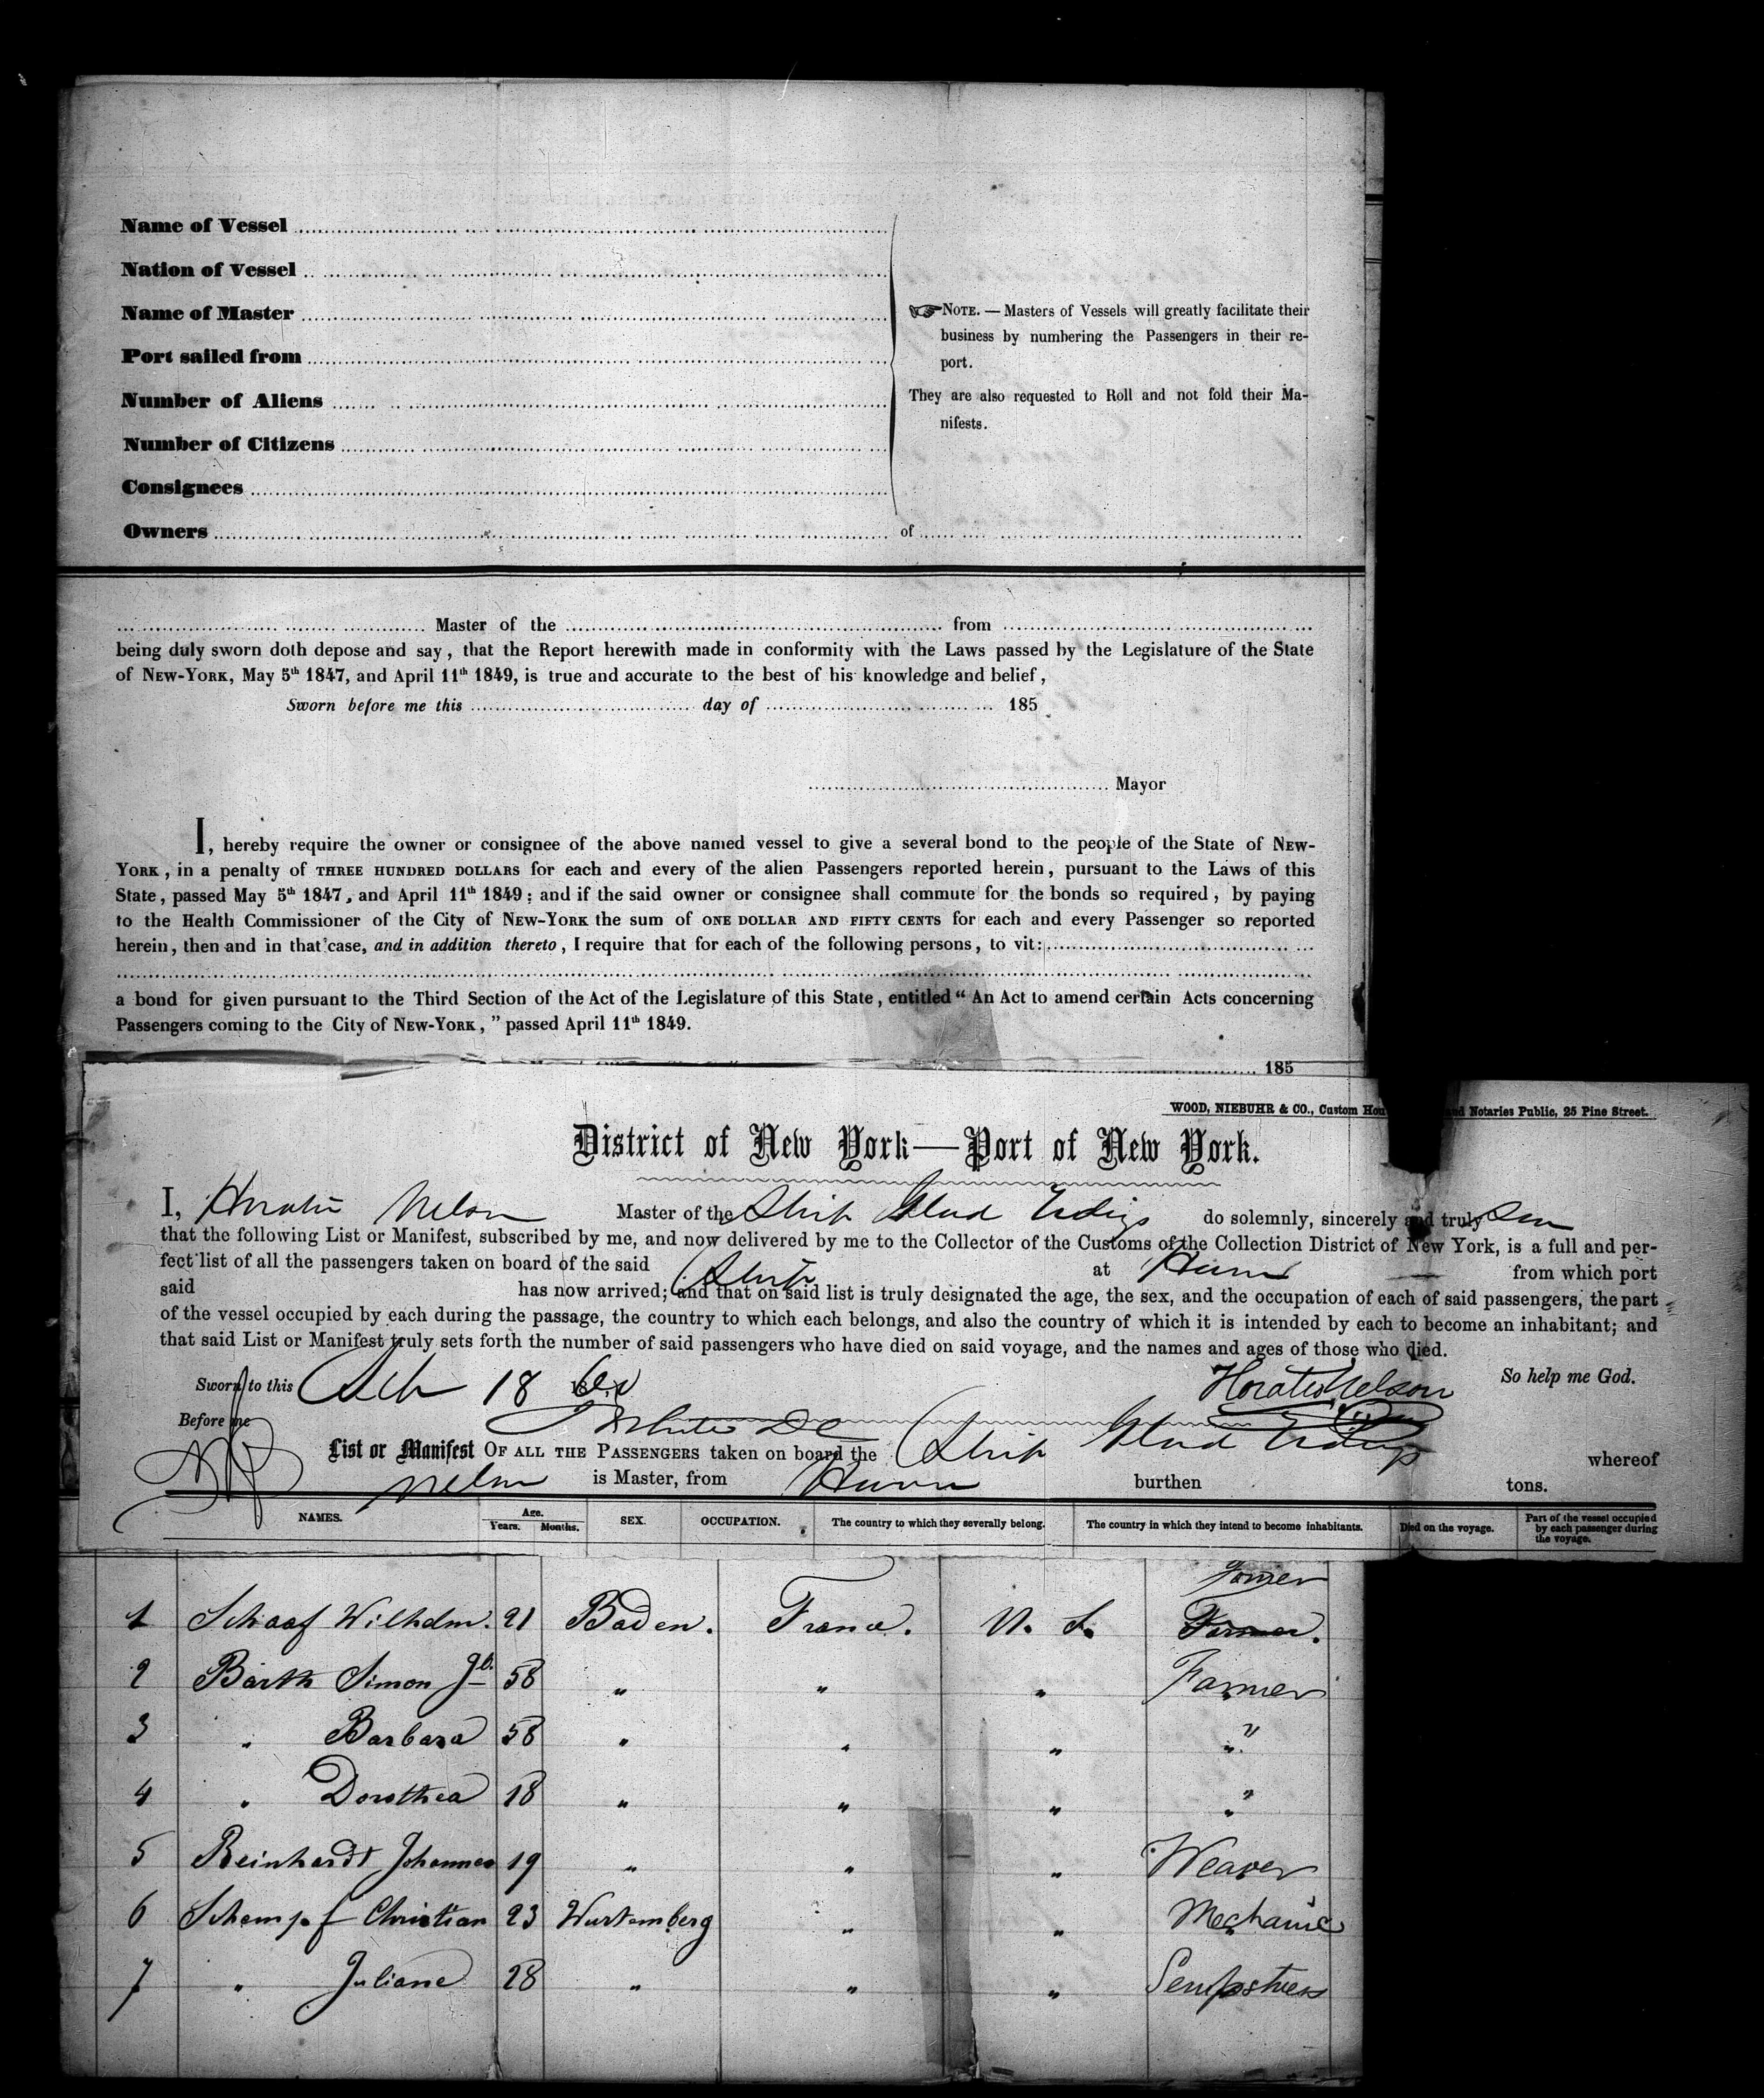 Name of Vessel
Nation of Vessel
Name of Master
Port sailed from
Number of Aliens
Number of Citizens
Consignees
Owners of
☞NOTE. — Masters of Vessels will greatly facilitate their
business by numbering the Passengers in their re-
port.
They are also requested to Roll and not fold their Ma-
nifests.
Master of the from
being duly sworn doth depose and say, that the Report herewith made in conformity with the Laws passed by the Legislature of the State
of NEW-YORK, May 5th 1847, and April 11th 1849, is true and accurate to the best of his knowledge and belief,
Sworn before me this day of 185
Mayor
I, hereby require the owner or consignee of the above named vessel to give a several bond to the people of the State of NEW-
YORK, in a penalty of THREE HUNDRED DOLLARS for each and every of the alien Passengers reported herein, pursuant to the Laws of this
State, passed May 5th 1847, and April 11th 1849; and if the said owner or consignee shall commute for the bonds so required, by paying
to the Health Commissioner of the City of NEW-YORK the sum of ONE DOLLAR AND FIFTY CENTS for each and every Passenger so reported
herein, then and in that case, and in addition thereto, I require that for each of the following persons, to vit:
a bond for given pursuant to the Third Section of the Act of the Legislature of this State, entitled “ An Act to amend certain Acts concerning
Passengers coming to the City of NEW-YORK, ” passed April 11th 1849.
185
WOOD, NIEBUHR & CO., Custom Hou nd Notaries Public, 25 Pine Street.
District of New York—Port of New York.
I, Horatio Nelson Master of the Ship do solemnly, sincerely and truly
that the following List or Manifest, subscribed by me, and now delivered by me to the Collector of the Customs of the Collection District of New York, is a full and per-
fect list of all the passengers taken on board of the said Ship at Havre from which port
said has now arrived; and that on said list is truly designated the age, the sex, and the occupation of each of said passengers, the part
of the vessel occupied by each during the passage, the country to which each belongs, and also the country of which it is intended by each to become an inhabitant; and
that said List or Manifest truly sets forth the number of said passengers who have died on said voyage, and the names and ages of those who died.
Sworn to this 18 So help me God.
Horatio Nelson
Before me
List or Manifest OF ALL THE PASSENGERS taken on board the Ship whereof
Nelson is Master, from Havre burthen tons.
NAMES. Age. Years. Months. SEX. OCCUPATION. The country to which they severally belong. The country in which they intend to become inhabitants. Died on the voyage. Part of the vessel occupied by each passenger during the voyage.
Farmer
1 Schaaf Wilhelm. 21 Baden. France. U. S. Farmer.
2 Barth Simon 58 " " " Farmer
3 " Barbara 58 " " " "
4 " Dorothea 18 " " " "
5 Reinhardt Johannes 19 " " " Weaver
6 Schempf Christian 23 Wurtemberg " " Mechanic
7 " Juliane 28 " " " Sempstress